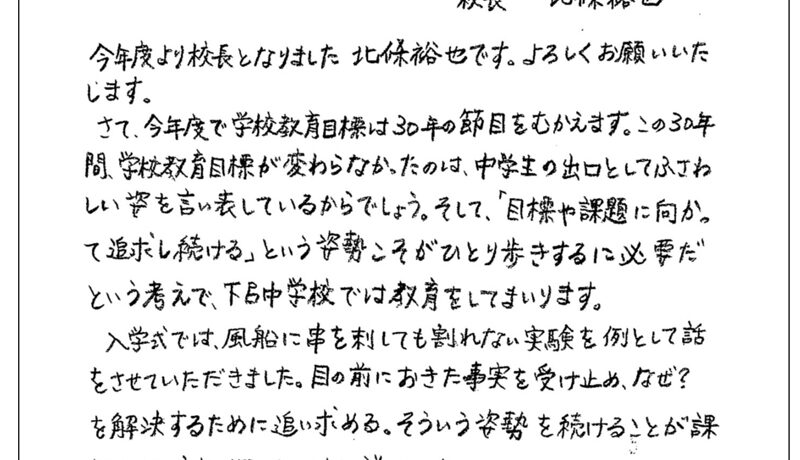 校長 北條裕也
今年度より校長となりました 北條裕也です。よろしくお願いいた
します。
さて、今年度で学校教育目標は30年の節目をむかえます。この30年
間、学校教育目標が変わらなかったのは、中学生の出口としてふさわ
しい姿を言い表しているからでしょう。そして、「目標や課題に向かっ
て追求し続ける」という姿勢こそがひとり歩きするに必要だ
という考えで、下呂中学校では教育をしてまいります。
入学式では、風船に串を刺しても割れない実験を例として話
をさせていただきました。目の前におきた事実を受け止め、なぜ?
を解決するために追い求める。そういう姿勢を続けることが課